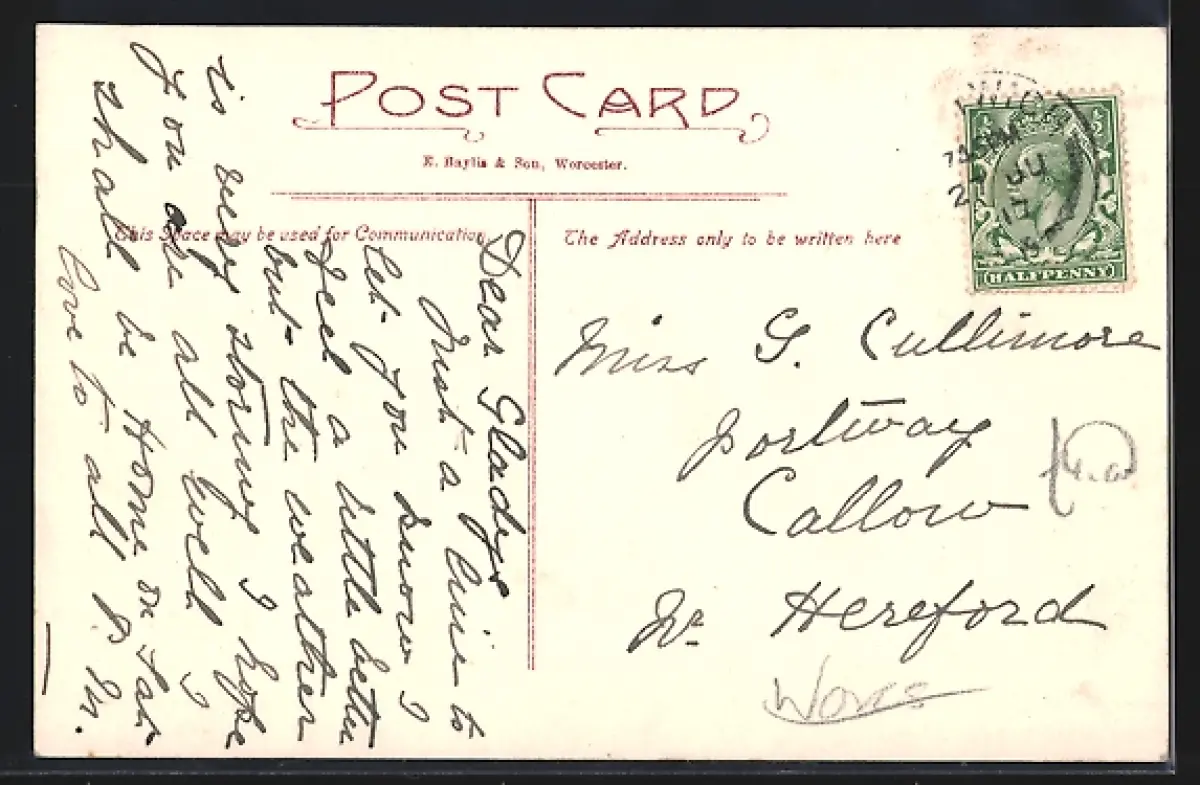 POST CARD
E. Baylis & Son, Worcester.
This Space may be used for Communication
The Address only to be written here
HALFPENNY
Dear Gladys
Just a line to
let you know I
feel a little better
but the weather
is very stormy I hope
you are all well I
shall be Home on Sat
love to all
Miss G. Cullimore
Portway
Callow
Nr Hereford
Worcs